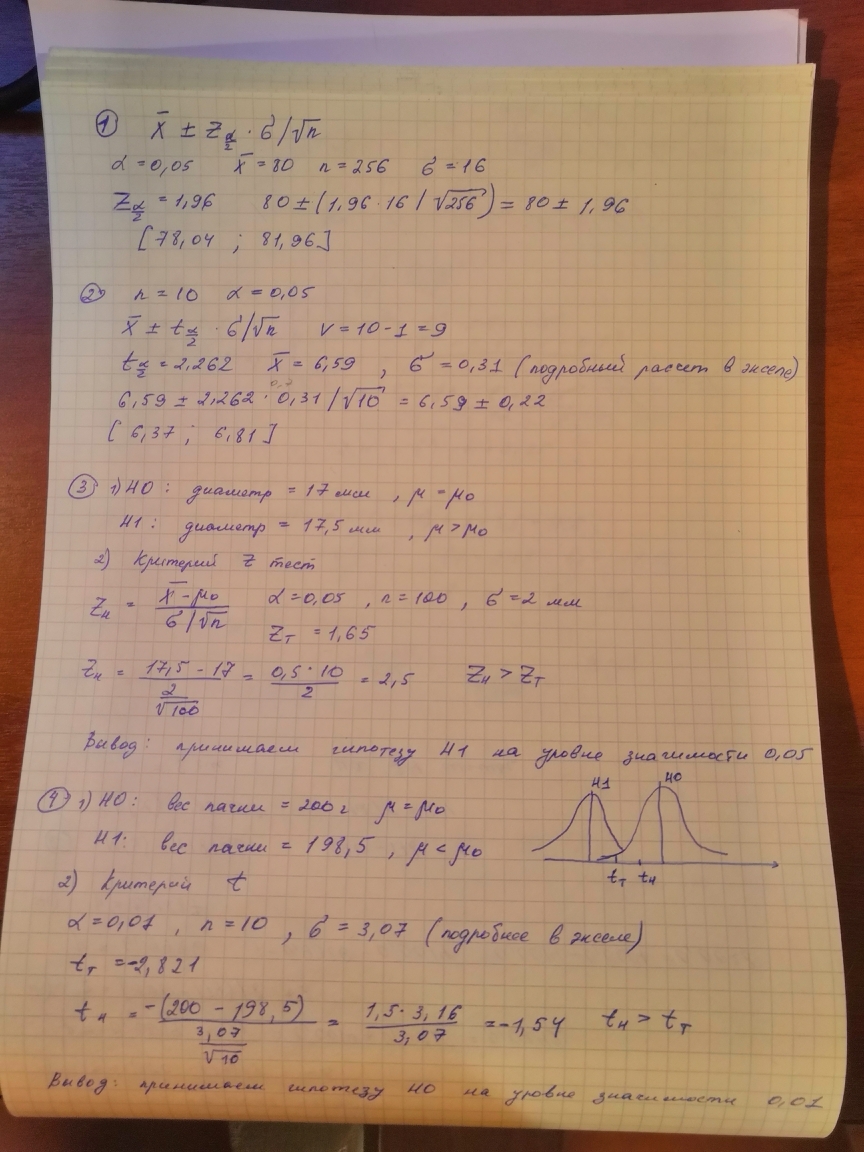 ① x̄ ± z α/2 · σ/√n
α = 0,05 x̄ = 80 n = 256 σ = 16
Z α/2 = 1,96 80 ± (1,96 · 16 / √256) = 80 ± 1,96
[78,04 ; 81,96]
② n = 10 α = 0,05
x̄ ± t α/2 · σ/√n V = 10 - 1 = 9
t α/2 = 2,262 x̄ = 6,59 , σ = 0,31 (подробный расчет в экселе)
6,59 ± 2,262 · 0,31 / √10 = 6,59 ± 0,22
[ 6,37 ; 6,81 ]
③ 1) H0 : диаметр = 17 мм , μ = μ0
H1 : диаметр = 17,5 мм , μ > μ0
2) Критерий Z тест
Zн = (x̄ - μ0) / (σ/√n) α = 0,05 , n = 100 , σ = 2 мм
Zт = 1,65
Zн = (17,5 - 17) / (2/√100) = (0,5 · 10) / 2 = 2,5 Zн > Zт
Вывод: принимаем гипотезу H1 на уровне значимости 0,05
H1 H0
④ 1) H0: вес пачки = 200 г μ = μ0
H1: вес пачки = 198,5 , μ < μ0
tт tн
2) Критерий t
α = 0,01 , n = 10 , σ = 3,07 (подробнее в экселе)
tт = -2,821
tн = -(200 - 198,5) / (3,07/√10) = (1,5 · 3,16) / 3,07 = -1,54 tн > tт
Вывод: принимаем гипотезу H0 на уровне значимости 0,01